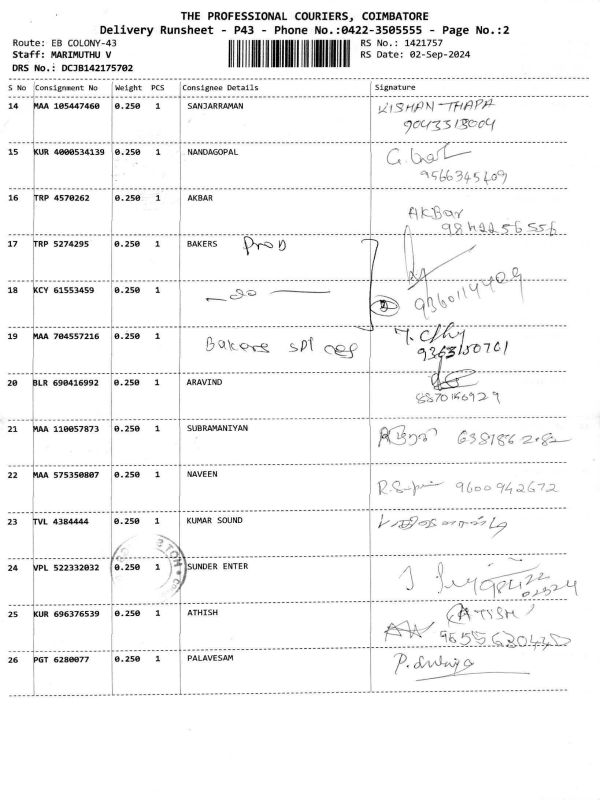 THE PROFESSIONAL COURIERS, COIMBATORE
Delivery Runsheet - P43 - Phone No.:0422-3505555 - Page No.:2
Route: EB COLONY-43 RS No.: 1421757
Staff: MARIMUTHU V RS Date: 02-Sep-2024
DRS No.: DCJB142175702
S No Consignment No Weight PCS Consignee Details Signature
14 MAA 105447460 0.250 1 SANJARRAMAN KISHAN THAPA
9043313004
15 KUR 4000534139 0.250 1 NANDAGOPAL
9566345409
16 TRP 4570262 0.250 1 AKBAR AKBar
9842256556
17 TRP 5274295 0.250 1 BAKERS Prod
18 KCY 61553459 0.250 1 9360114409
19 MAA 704557216 0.250 1 Bakers
9363150701
20 BLR 690416992 0.250 1 ARAVIND
8870156929
21 MAA 110057873 0.250 1 SUBRAMANIYAN
22 MAA 575350807 0.250 1 NAVEEN 9600942672
23 TVL 4384444 0.250 1 KUMAR SOUND
24 VPL 522332032 0.250 1 SUNDER ENTER
25 KUR 696376539 0.250 1 ATHISH
26 PGT 6280077 0.250 1 PALAVESAM